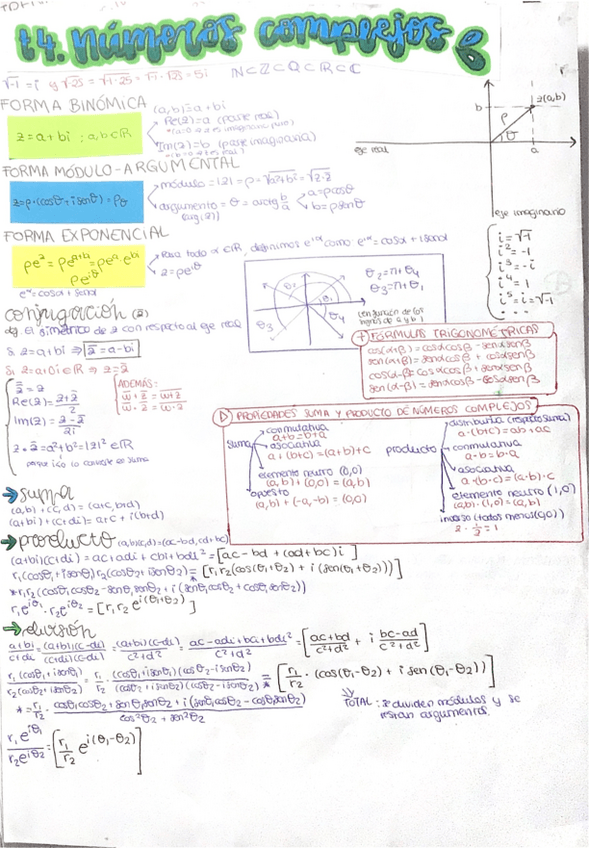 t4. números complejos
√-1 = i y √-25 = √-1·25 = √-1 · √25 = 5i
N⊂Z⊂Q⊂R⊂C
FORMA BINÓMICA
(a,b) = a+bi
z = a+bi ; a,b∈R
Re(z) = a (parte real)
Im(z) = b (parte imaginaria)
b
z(a,b)
ρ
θ
a
eje real
eje imaginario
FORMA MÓDULO-ARGUMENTAL
z=ρ·(cosθ+isenθ) = ρθ
módulo = |z| = ρ = √a²+b² = √z·z̄
argumento = θ = arctg b/a
(arg(z))
a=ρcosθ
b=ρsenθ
FORMA EXPONENCIAL
Para todo α∈R, definimos e^iα como e^iα = cosα + isenα
z = ρe^iθ
ρe^iθ
i = √-1
i² = -1
i³ = -i
i⁴ = 1
i⁵ = i = √-1
θ₂ = π+θ₄
θ₃ = π+θ₁
θ₃
θ₄
conjugación (z̄)
El simétrico de z con respeto al eje real
si z = a+bi ⇒ z̄ = a-bi
si z = a+0i ∈R ⇒ z = z̄
Re(z) = z+z̄/2
Im(z) = z-z̄/2i
z·z̄ = a²+b² = |z|² ∈R
ADEMÁS:
+ FÓRMULAS TRIGONOMÉTRICAS
cos(α+β) = cosαcosβ - senαsenβ
sen(α+β) = senαcosβ + cosαsenβ
cos(α-β) = cosαcosβ + senαsenβ
sen(α-β) = senαcosβ - cosαsenβ
▷ PROPIEDADES SUMA Y PRODUCTO DE NÚMEROS COMPLEJOS
suma
conmutativa
a+b=b+a
asociativa
a+(b+c) = (a+b)+c
elemento neutro (0,0)
(a,b)+(0,0) = (a,b)
opuesto
(a,b)+(-a,-b) = (0,0)
producto
distributiva (respecto suma)
a·(b+c) = ab+ac
conmutativa
a·b = b·a
asociativa
a·(b·c) = (a·b)·c
elemento neutro (1,0)
(a,b)·(1,0) = (a,b)
inverso (todos menos (0,0))
z·1/z = 1
→ suma
(a,b)+(c,d) = (a+c, b+d)
(a+bi)+(c+di) = a+c+i(b+d)
→ producto (a,b)(c,d)=(ac-bd, cd+bc)
(a+bi)(c+di) = ac+adi+cbi+bdi² = [ac-bd+(ad+bc)i]
r₁(cosθ₁+isenθ₁)r₂(cosθ₂+isenθ₂) =* [r₁r₂(cos(θ₁+θ₂)+i(sen(θ₁+θ₂)))]
*r₁r₂(cosθ₁cosθ₂-senθ₁senθ₂+i(senθ₁cosθ₂+cosθ₁senθ₂))
r₁e^iθ₁·r₂e^iθ₂ = [r₁r₂e^i(θ₁+θ₂)]
→ división
a+bi/c+di = (a+bi)(c-di)/(c+di)(c-di) = (a+bi)(c-di)/c²+d² = ac-adi+bci+bdi²/c²+d² = [ac+bd/c²+d² + i bc-ad/c²+d²]
r₁(cosθ₁+isenθ₁)/r₂(cosθ₂+isenθ₂) = r₁/r₂ · (cosθ₁+isenθ₁)(cosθ₂-isenθ₂)/(cosθ₂+isenθ₂)(cosθ₂-isenθ₂) =* [r₁/r₂ · (cos(θ₁-θ₂)+isen(θ₁-θ₂))]
* = r₁/r₂ · cosθ₁cosθ₂+senθ₁senθ₂+i(senθ₁cosθ₂-cosθ₁senθ₂)/cos²θ₂+sen²θ₂
TOTAL: se dividen módulos y se
restan argumentos.
r₁e^iθ₁/r₂e^iθ₂ = [r₁/r₂ e^i(θ₁-θ₂)]